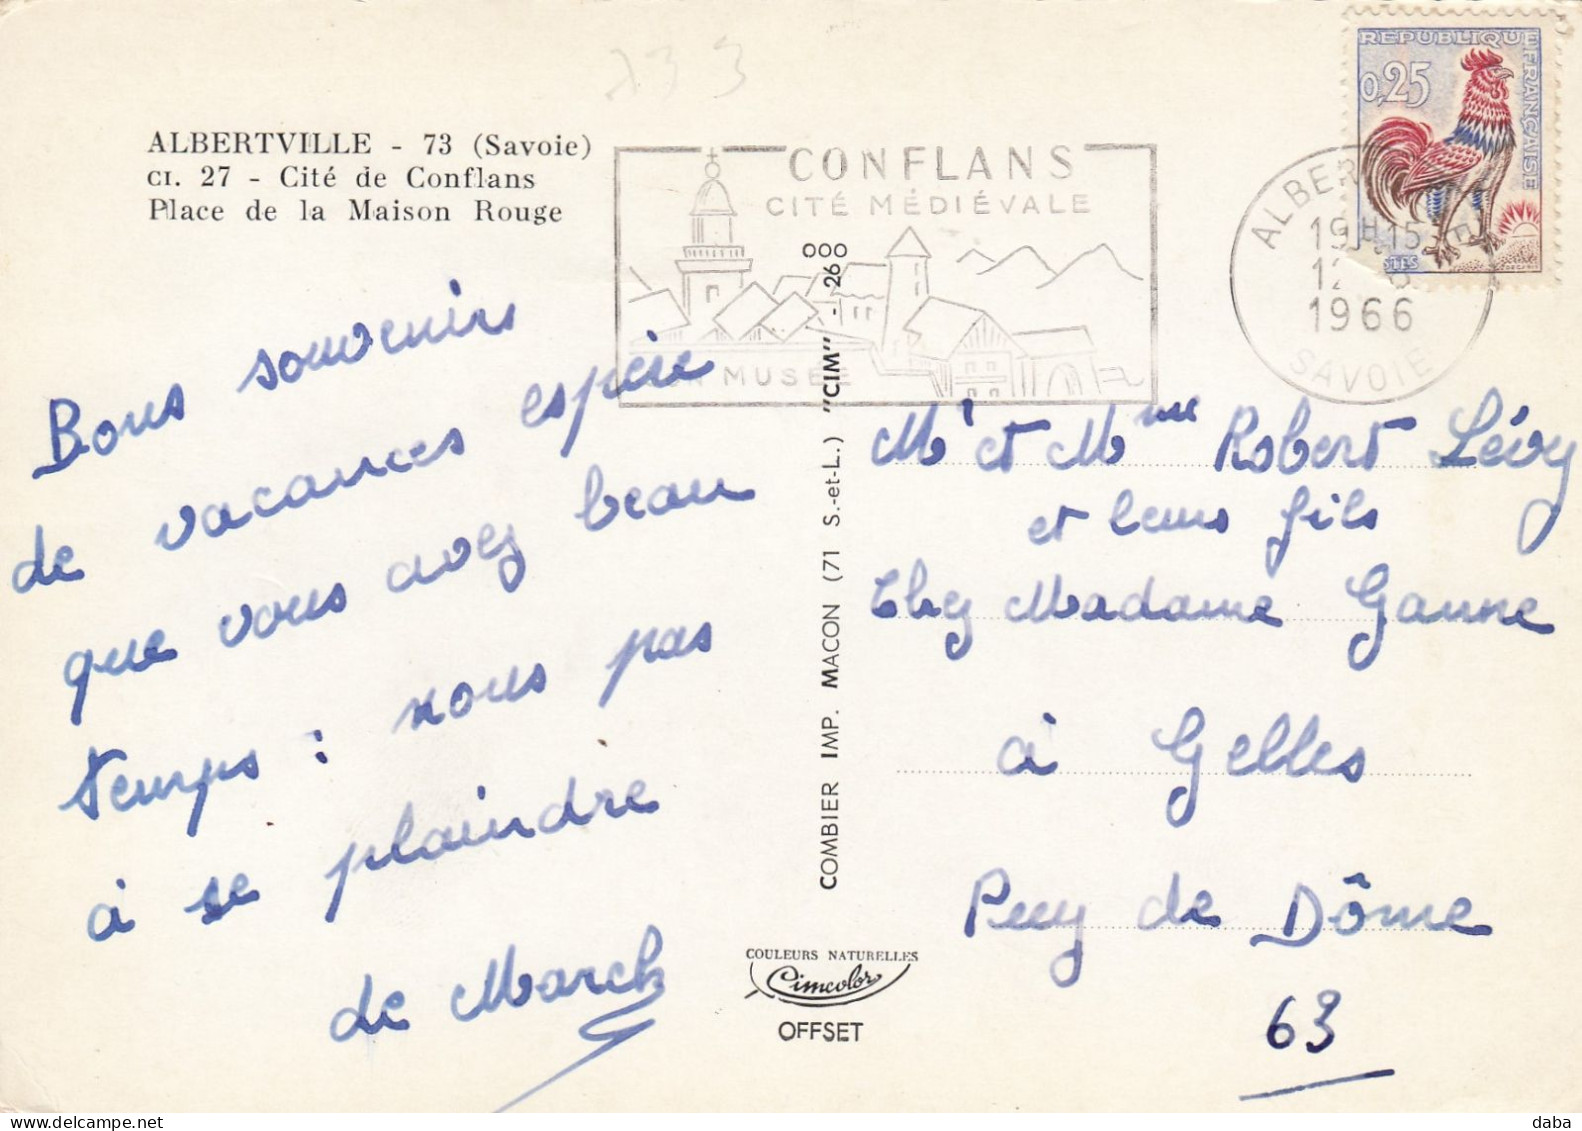 733
ALBERTVILLE - 73 (Savoie)
CI. 27 - Cité de Conflans
Place de la Maison Rouge
CONFLANS
CITÉ MÉDIÉVALE
MUSÉE
REPUBLIQUE FRANÇAISE
0,25
ALBER
19H15
12
1966
SAVOIE
Bons souvenirs
de vacances espère
que vous avez beau
temps : nous pas
à se plaindre
de March
COMBIER IMP. MACON (71 S.-et-L.) "CIM" - 26
COULEURS NATURELLES
Cimcolor
OFFSET
Mr et Mme Robert Lévy
et leurs fils
Chez Madame Ganne
à Gelles
Puy de Dôme
63
daba